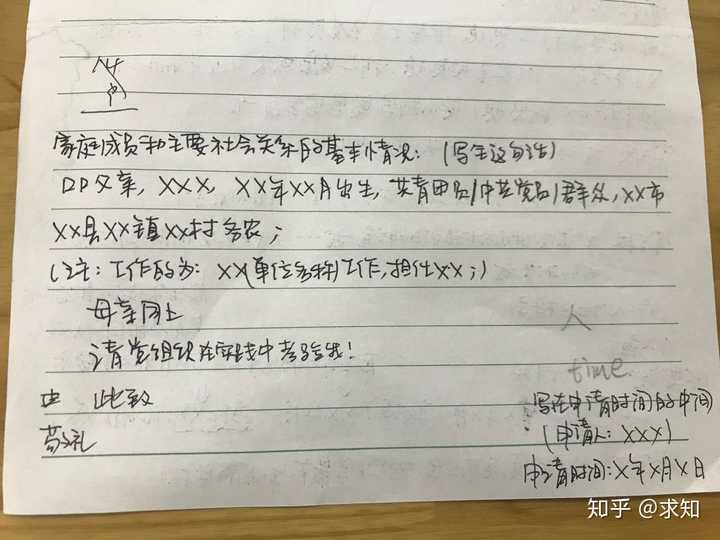 家庭成员和主要社会关系的基本情况:(写全这句话)
父亲,XXX,XX年XX月出生,共青团员/中共党员/群众,XX市
XX县XX镇XX村务农;
(注:工作的为:XX(单位名称)工作,担任XX;)
母亲同上
请党组织在实践中考验我!
此致
敬礼
人
time
写在申请时间的中间
(申请人:XXX)
申请时间:X年X月X日
知乎 @求知